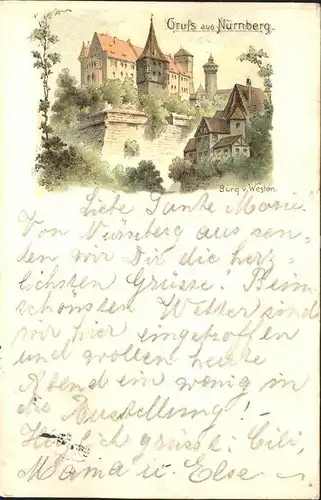 Gruss aus Nürnberg.
Burg v. Westen.
Liebe Tante Marie.
Von Nürnberg aus sen-
den wir Dir die herz-
lichsten Grüsse! Beim
schönsten Wetter sind
wir hier eingetroffen
und wollen heute
Abend ein wenig in
die Ausstellung! –
Herzlich grüsse: Cili,
Mama u. Else